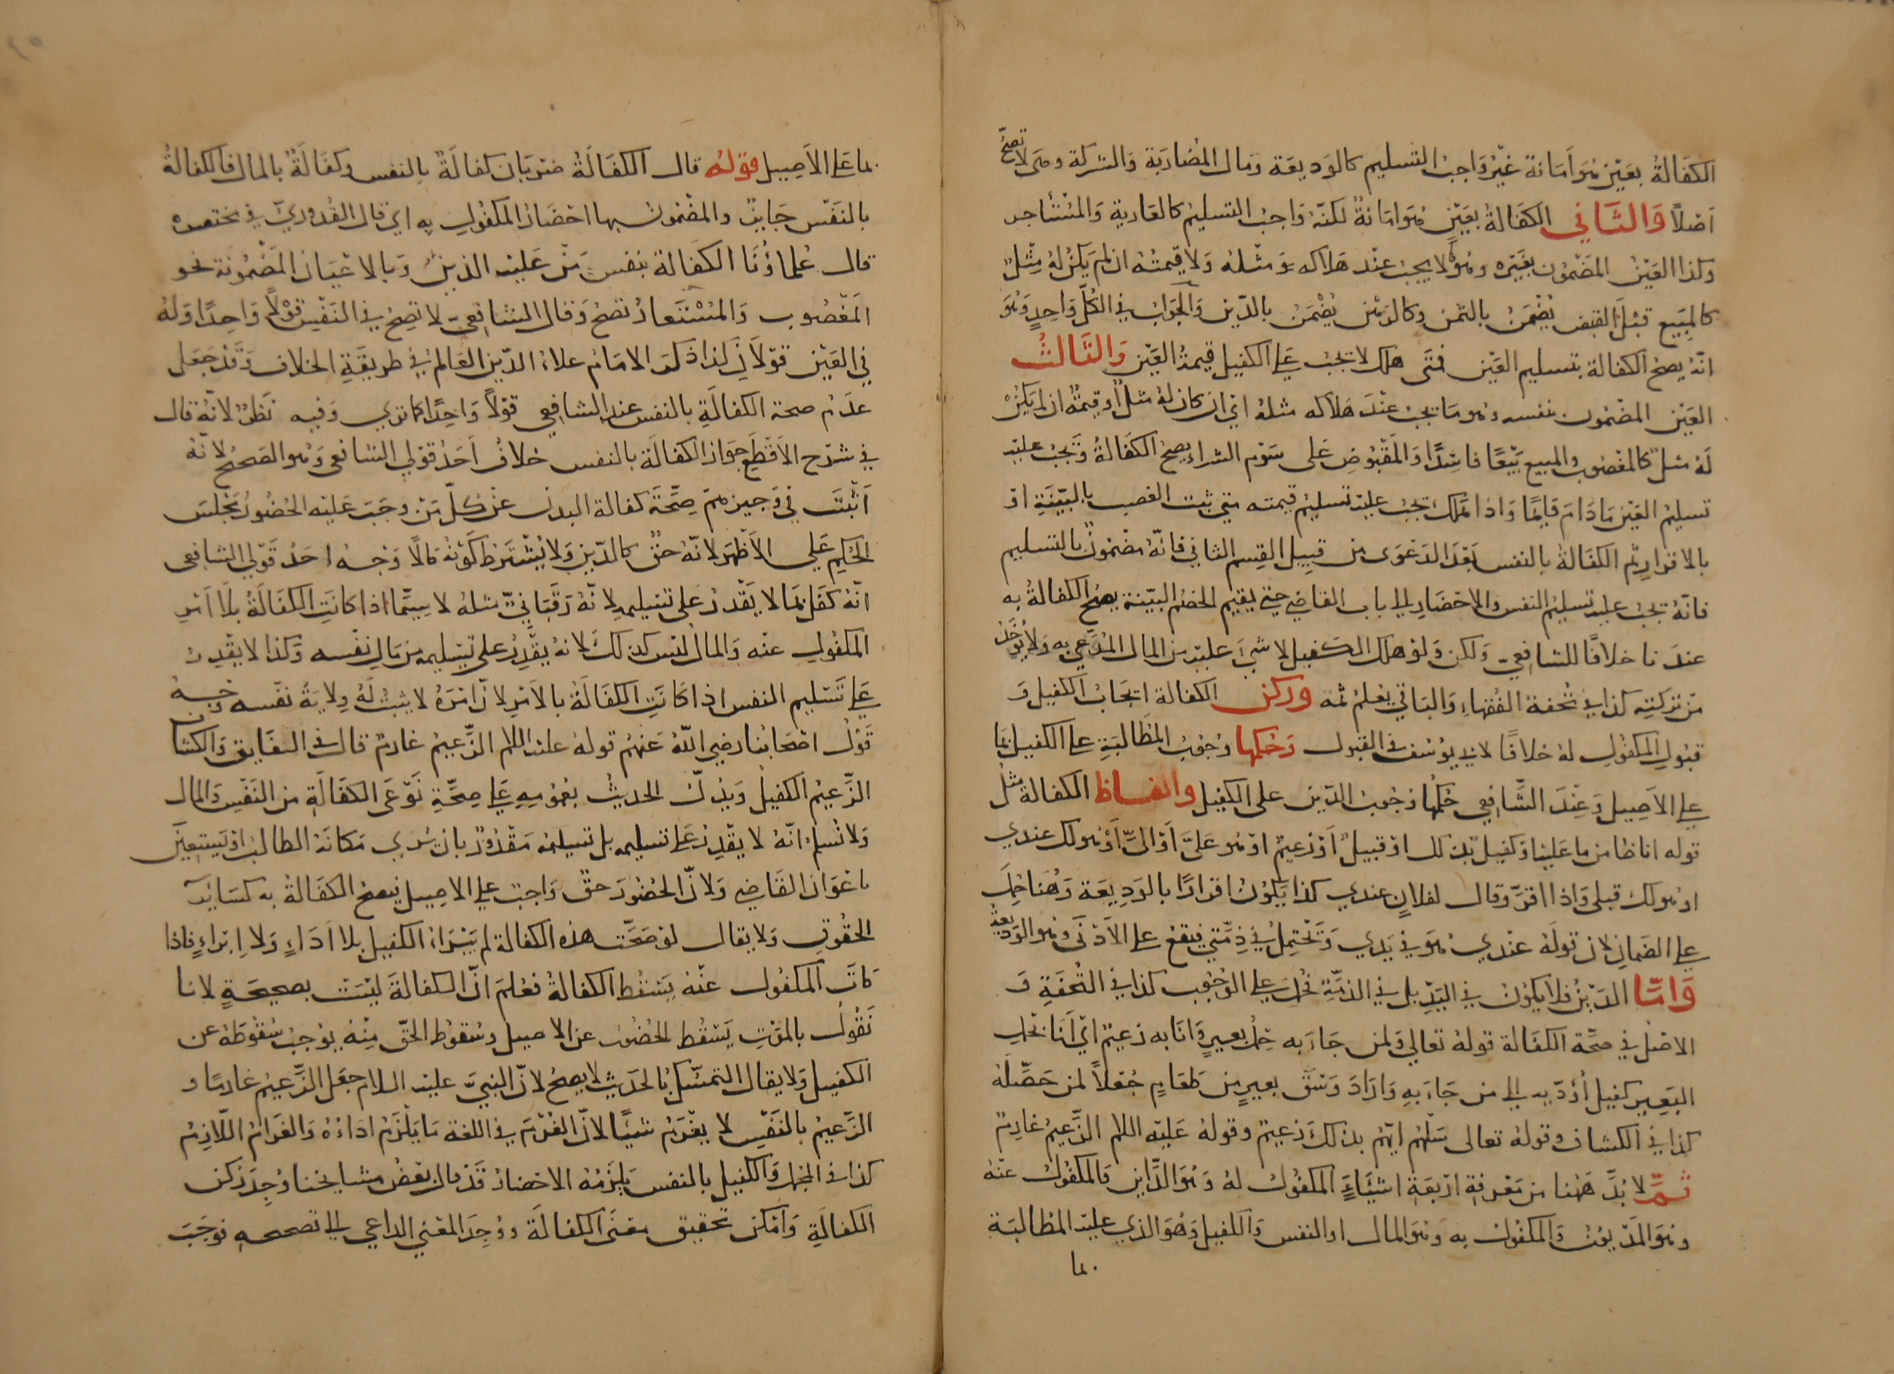 الكفالة بعين هو امانة غير واجب التسليم كالوديعة ومال المضاربة والشركة وهى لا تصح
اصلا والثاني الكفالة بعين هو امانة لكنه واجب التسليم كالعارية والمستأجر
وكذا العين المضمون بغيره وهو لا يجب عند هلاكه مثله ولا قيمته ان لم يكن له مثل
كالمبيع قبل القبض يضمن بالثمن وكالرهن يضمن بالدين والجواب في الكل واحد وهو
انه يصح الكفالة بتسليم العين فمتى هلك لا تجب على الكفيل قيمة العين والثالث
العين المضمون بنفسه وهو ما يجب عند هلاكه مثله اي ان كان له مثل او قيمته ان لم يكن
له مثل كالمغصوب والمبيع بيعا فاسدا والمقبوض على سوم الشراء يصح الكفالة وتجب عليه
تسليم العين ما دام قايما واذا هلك تجب عليه تسليم قيمته متى ثبت الغصب بالبينة او
بالاقرار ثم الكفالة بالنفس بعد الدعوى من قبيل القسم الثاني فانه مضمون بالتسليم
فانه تجب عليه تسليم النفس والاحضار الى باب القاضي حتى يقيم الخصم البينة يصح الكفالة به
عندنا خلافا للشافعي ولكن ولو هلك الكفيل لا شيء عليه من المال المدعى به ولا يؤخذ
من تركته كذا في تحفة الفقهاء والباقي يعلم ثمه وركن الكفالة ايجاب الكفيل و
قبول المكفول له خلافا لابي يوسف في القبول وحكمها وجوب المطالبة على الكفيل بما
على الاصيل وعند الشافعي حكمها وجوب الدين على الكفيل والفاظ الكفالة مثل
قوله انا ضامن ما عليه او كفيل بذلك او قبيل او زعيم او هو علي او الي او هو لك عندي
او هو لك قبلي واذا اقر وقال لفلان عندي كذا يكون اقرارا بالوديعة وهنا حمل
على الضمان لان قوله عندي هو في يدي وتحتمل في ذمتي فيقع على الادنى وهو الوديعة
واما الدين فلا يكون في اليد بل في الذمة تحمل على الوجوب كذا في التحفة و
الاصل في صحة الكفالة قوله تعالى ولمن جاء به حمل بعير وانا به زعيم اي انا بحمل
البعير كفيل اؤديه الى من جاء به واراد وسق بعير من طعام جعلا لمن حصله
كذا في الكشاف وقوله تعالى سلهم ايهم بذلك زعيم وقوله عليه السلام الزعيم غارم
ثم لا بد ههنا من معرفة اربعة اشياء المكفول له وهو الداين والمكفول عنه
وهو المديون والمكفول به وهو المال او النفس والكفيل وهو الذي عليه المطالبة
بما
بما على الاصيل قوله قال الكفالة ضربان كفالة بالنفس وكفالة بالمال فالكفالة
بالنفس جايز والمضمون بها احضار المكفول به اي قال القدوري في مختصره
قال علماؤنا الكفالة بنفس من عليه الدين وبالاعيان المضمونة نحو
المغصوب والمستعار تصح وقال الشافعي لا تصح في النفس قولا واحدا وله
في العين قولان كذا ذكر الامام علاء الدين العالم في طريقة الخلاف وقد جعل
عدم صحة الكفالة بالنفس عند الشافعي قولا واحدا كما ترى وفيه نظر لانه قال
في شرح الاقطع جواز الكفالة بالنفس خلاف احد قولي الشافعي وهو الصحيح لانه
اثبت في وجيزهم صحة كفالة البدن عن كل من وجب عليه الحضور بمجلس
الحكم على الاظهر لانه حق كالدين ولا يشترط كونه مالا وجه احد قولي الشافعي
انه كفل بما لا يقدر على تسليمه لانه رقباني مثله لا سيما اذا كانت الكفالة بلا امر
المكفول عنه والمال ليس كذلك لانه يقدر على تسليمه من مال نفسه وكذا لا يقدر
على تسليم النفس اذا كانت الكفالة بالامر لان امره لا يثبت له ولاية نفسه وجه
قول اصحابنا رضي الله عنهم قوله عليه السلام الزعيم غارم قال في الفايق والكشاف
الزعيم الكفيل ويدل الحديث بعمومه على صحة نوعى الكفالة من النفس والمال
ولا نسلم انه لا يقدر على تسليمه بل تسليمه مقدور بان يري مكانه الطالب او يستعين
باعوان القاضي ولان الحضور حق واجب على الاصيل فيصح الكفالة به كساير
الحقوق ولا يقال لو صحت هذه الكفالة لم يبرا الكفيل بلا اداء ولا ابراء فاذا
مات المكفول عنه يسقط الكفالة فعلم ان الكفالة ليست بصحيحة لانا
نقول بالموت يسقط الحضور عن الاصيل وسقوط الحق منه يوجب سقوطه عن
الكفيل ولا يقال التمسك بالحديث لا يصح لان النبي عليه السلام جعل الزعيم غارما و
الزعيم بالنفس لا يغرم شيئا لان الغرم في اللغة ما يلزم اداؤه والغرام اللازم
كذا في المجمل والكفيل بالنفس يلزمه الاحضار قد قال بعض مشايخنا وجد ركن
الكفالة وامكن تحقيق معنى الكفالة ووجد المعنى الداعي الى تصحيحه فوجب